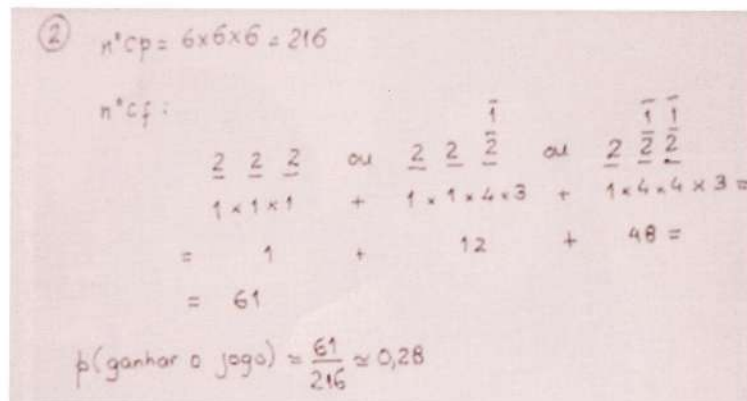 ② nº cp = 6×6×6 = 216
nº cf :
1̄ 1̄ 1̄
2 2 2 ou 2 2 2̄ ou 2 2̄ 2̄
1 × 1 × 1 + 1 × 1 × 4 × 3 + 1 × 4 × 4 × 3 =
= 1 + 12 + 48 =
= 61
p(ganhar o jogo) = 61/216 ≃ 0,28